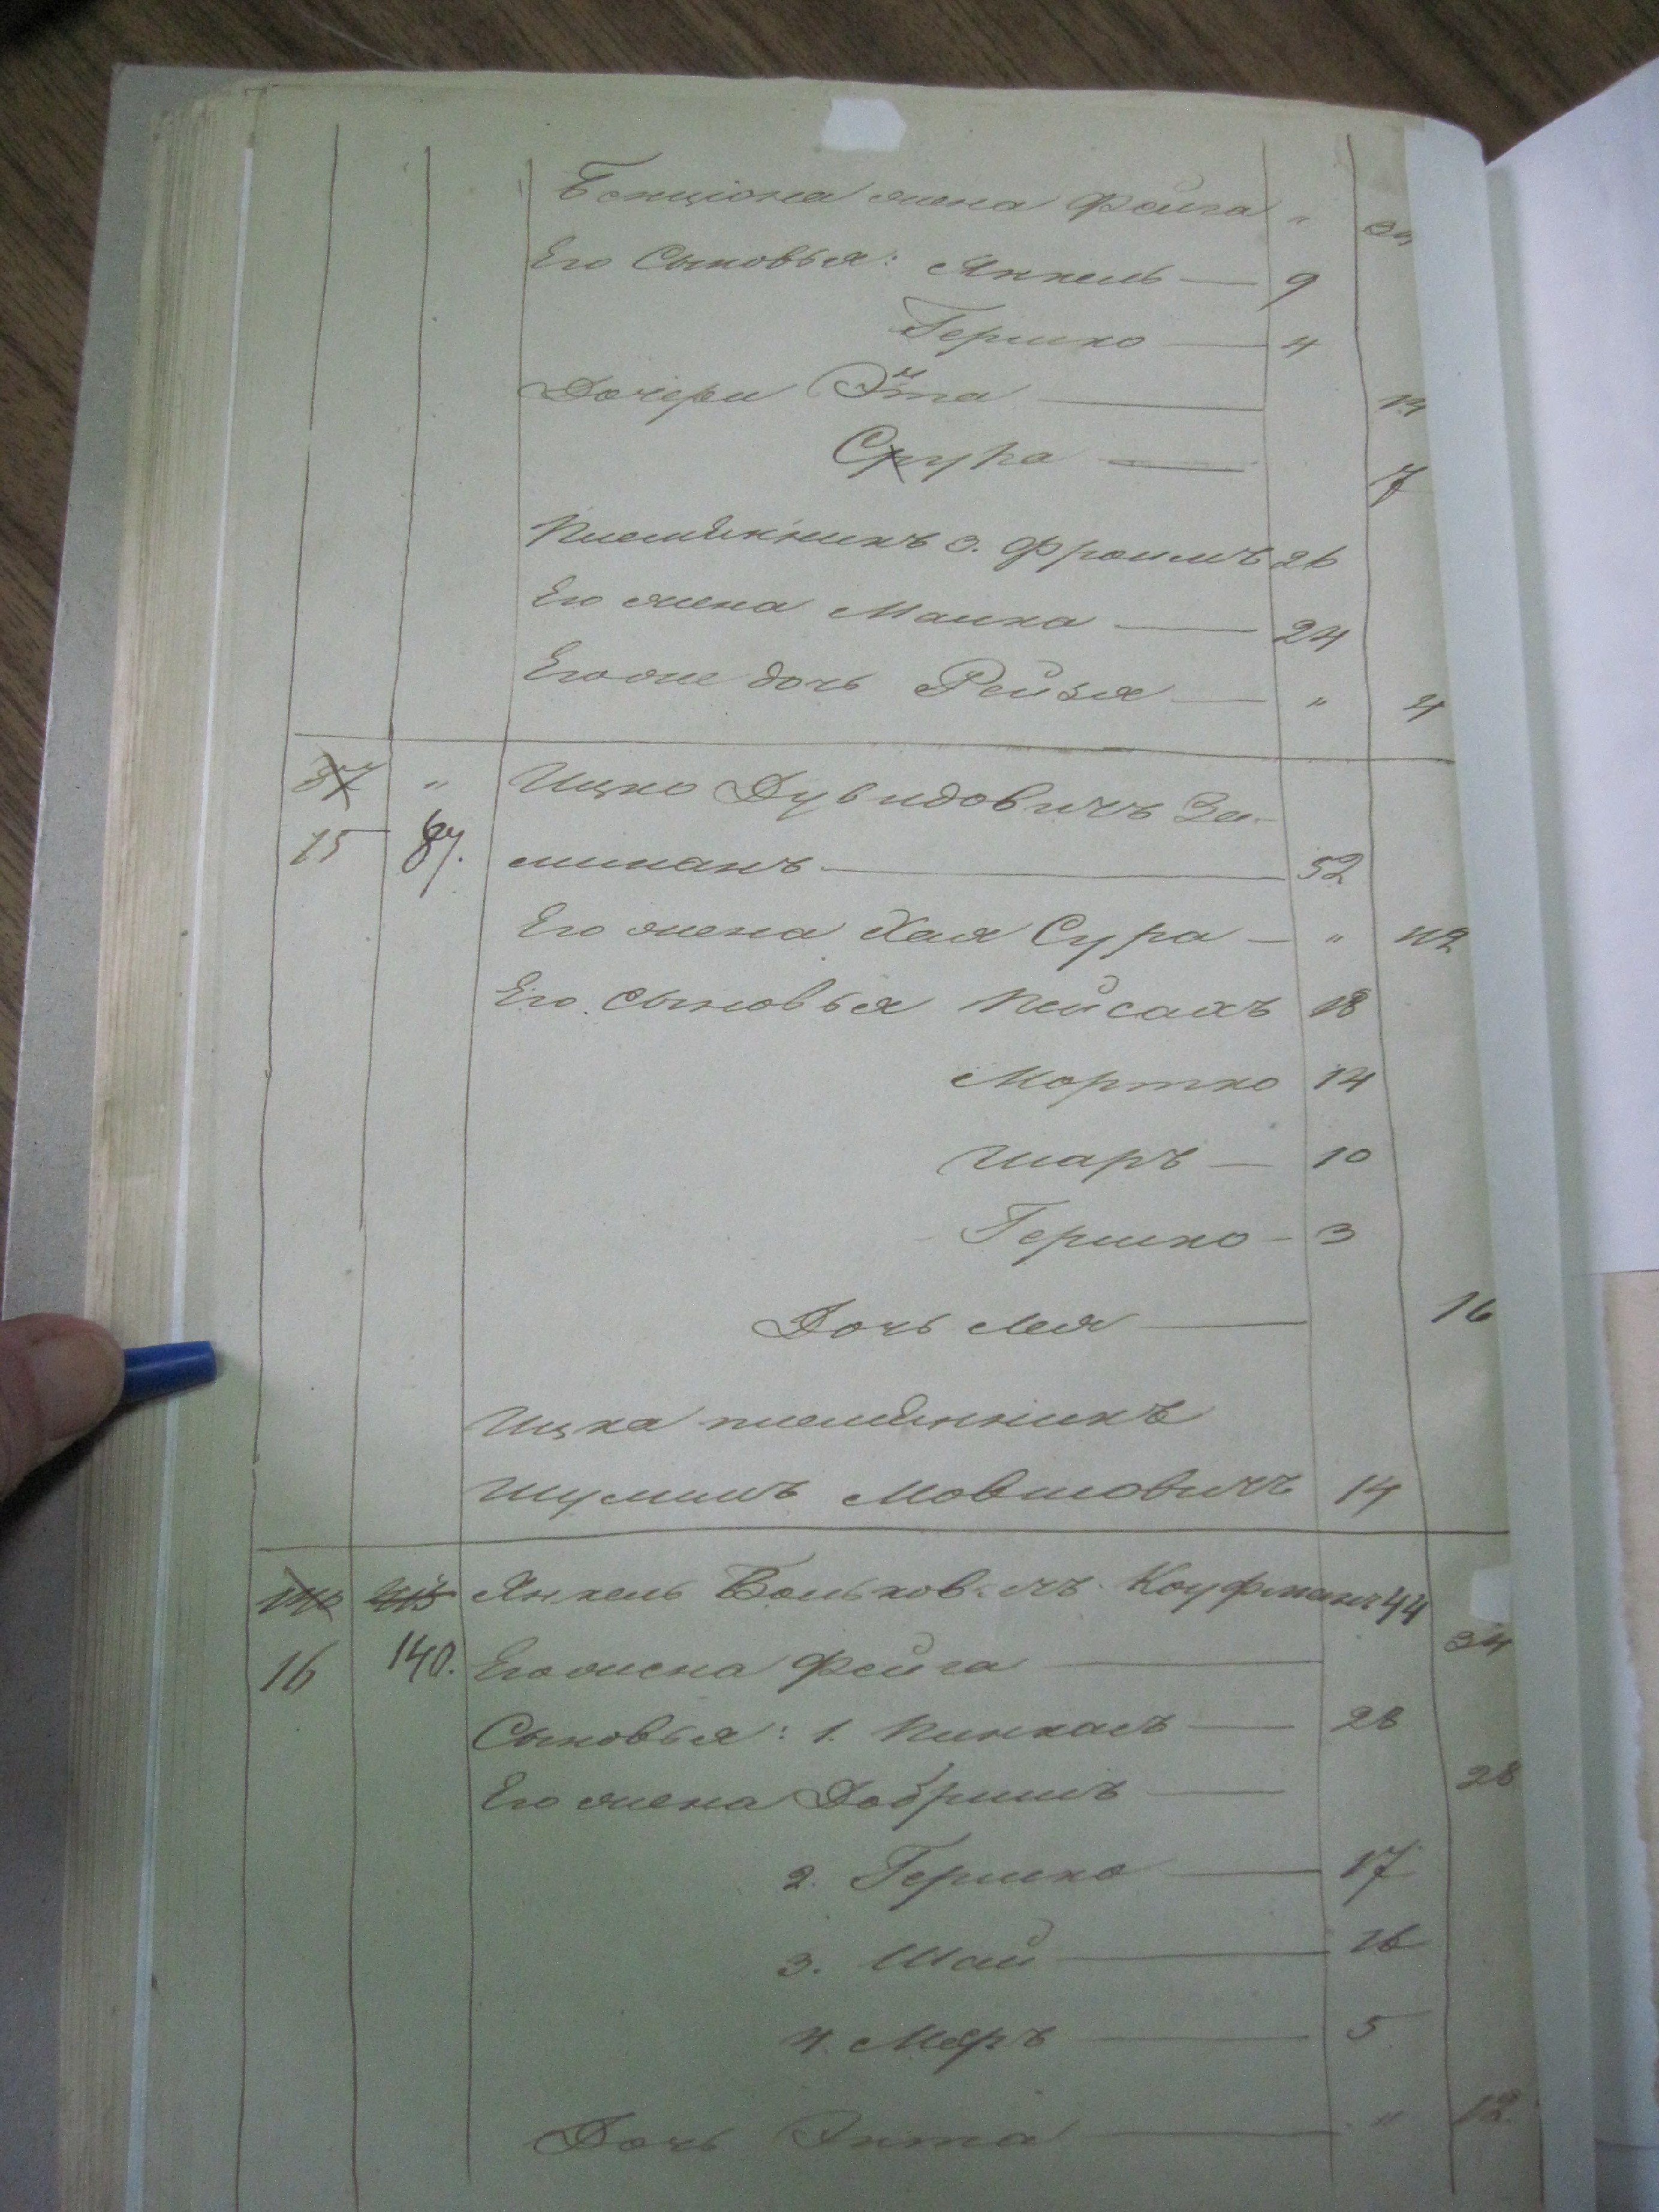 Бенціона жена Фейга "
Его Сыновья: Янкель — 9
Гершко — 4
Дочери Эта — 14
Сура — 7
Племянникъ 3. Фроимъ 26
Его жена Малка — 24
Его же дочь Рейзя — " 4
87 " Ицко Дувидовичъ Зи-
15 87. шманъ — 52
Его жена Хая Сура — " 42
Его Сыновья Пейсахъ 18
Мортко 14
10
Гершко — 3
Дочь Лея — 16
Ицка племянникъ
Шулимъ Мовшовичъ 14
Янкель Вольковичъ Кауфманъ 44
16 140. Его жена Фейга — 34
Сыновья: 1. Пинкасъ — 28
Его жена Добришъ — 28
2. Гершко — 17
3. Шай — 16
4. Меръ — 5
Дочь — " 12